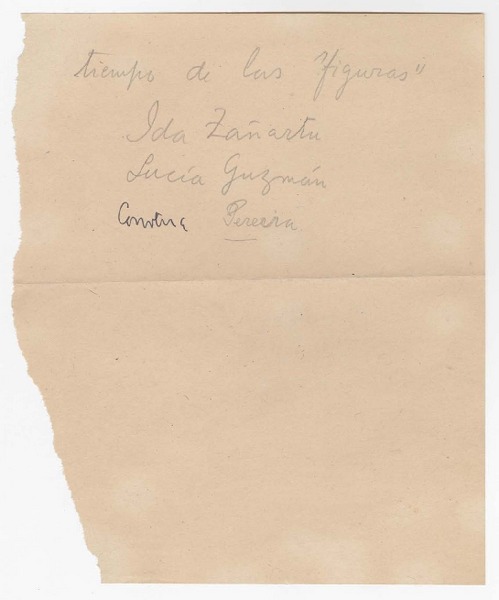 tiempo de las figuras"
Ida Zañartu
Lucía Guzmán
Pereira